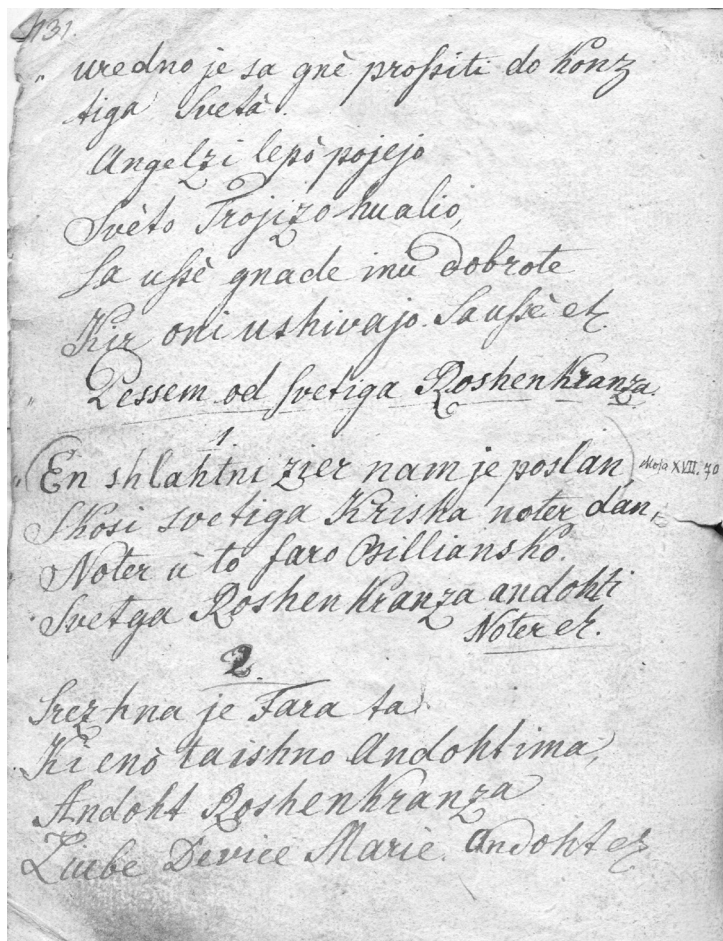 131.
uredno je sa gnè proſsiti do Konz
tiga Svetà.
Angelzi lepò pojejo
Svèto Trojizo hualio,
Sa uſsè gnade inù dobrote
Kir oni ushivajo. Sa uſsè etz
Pessem od ſvetiga Roshenkranza.
1
En shlahtni zier nam je poslan,
Skosi svetiga Kriska noter dan,
Noter ù to faro Billiansko.
Svetga Roshenkranza andohti
Noter etz.
2
Srezhna je Fara ta
Ki enò taishno Andoht ima,
Andoht Roshenkranza
Liube Device Marie. andoht etz